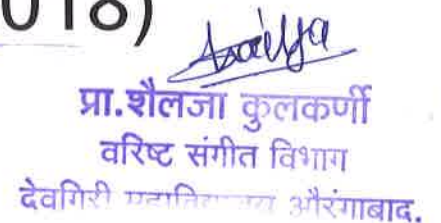 018)
प्रा.शैलजा कुलकर्णी
वरिष्ट संगीत विभाग
देवगिरी महाविद्यालय औरंगाबाद.